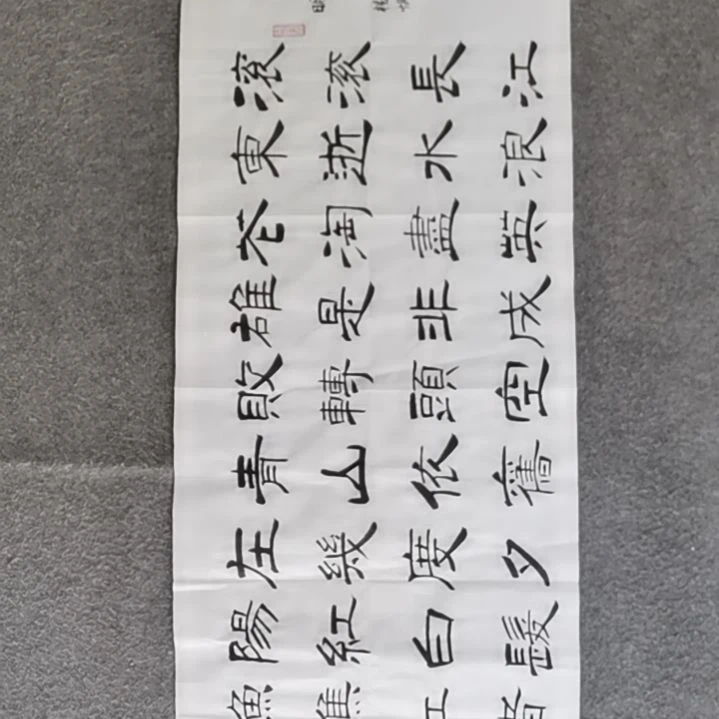 滚滚長江
東逝水浪
花淘盡英
雄是非成
敗轉頭空
青山依舊
在幾度夕
陽紅白髮
漁樵江渚